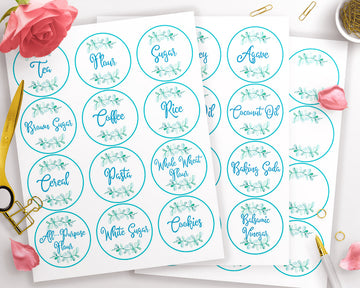 Tea
Flour
Sugar
Agave
Brown Sugar
Coffee
Rice
Coconut Oil
Cereal
Pasta
Whole Wheat
Flour
Baking Soda
All-Purpose
Flour
White Sugar
Cookies
Balsamic
Vinegar